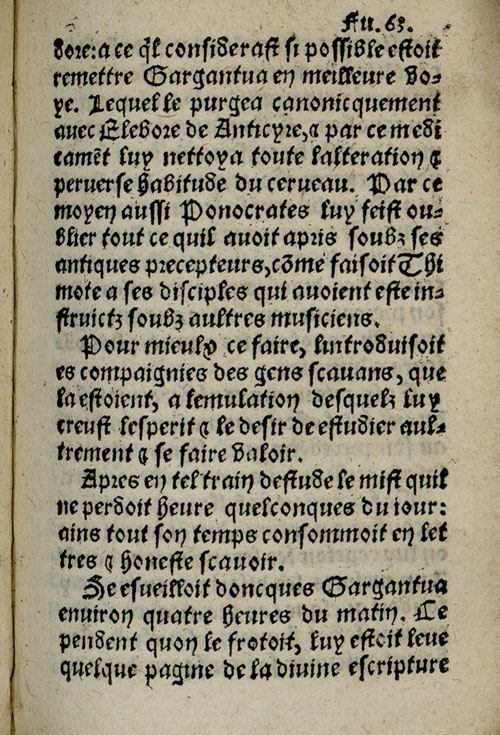 Fu. 63.
dore: a ce q̃l considerast si possible estoit
remettre Gargantua en meilleure vo-
ye. Lequel le purgea canonicquement
auec Elebore de Anticyre, ⁊ par ce medi
camẽt luy nettoya toute lalteration ⁊
peruerse habitude du cerueau. Par ce
moyen aussi Ponocrates luy feist ou-
blier tout ce quil auoit apris soubz ses
antiques precepteurs, cõme faisoit Thi
mote a ses disciples qui auoient este in-
structz soubz aultres musiciens.
Pour mieulx ce faire, lintroduisoit
es compaignies des gens scauans, que
la estoient, a lemulation desquelz luy
creust lesperit ⁊ le desir de estudier aul-
trement ⁊ se faire valoir.
Apres en tel train destude le mist quil
ne perdoit heure quelconques du iour:
ains tout son temps consommoit en let
tres ⁊ honeste scauoir.
Se esueilloit doncques Gargantua
enuiron quatre heures du matin. Ce
pendent quon le frotoit, luy estoit leue
quelque pagine de la diuine escripture